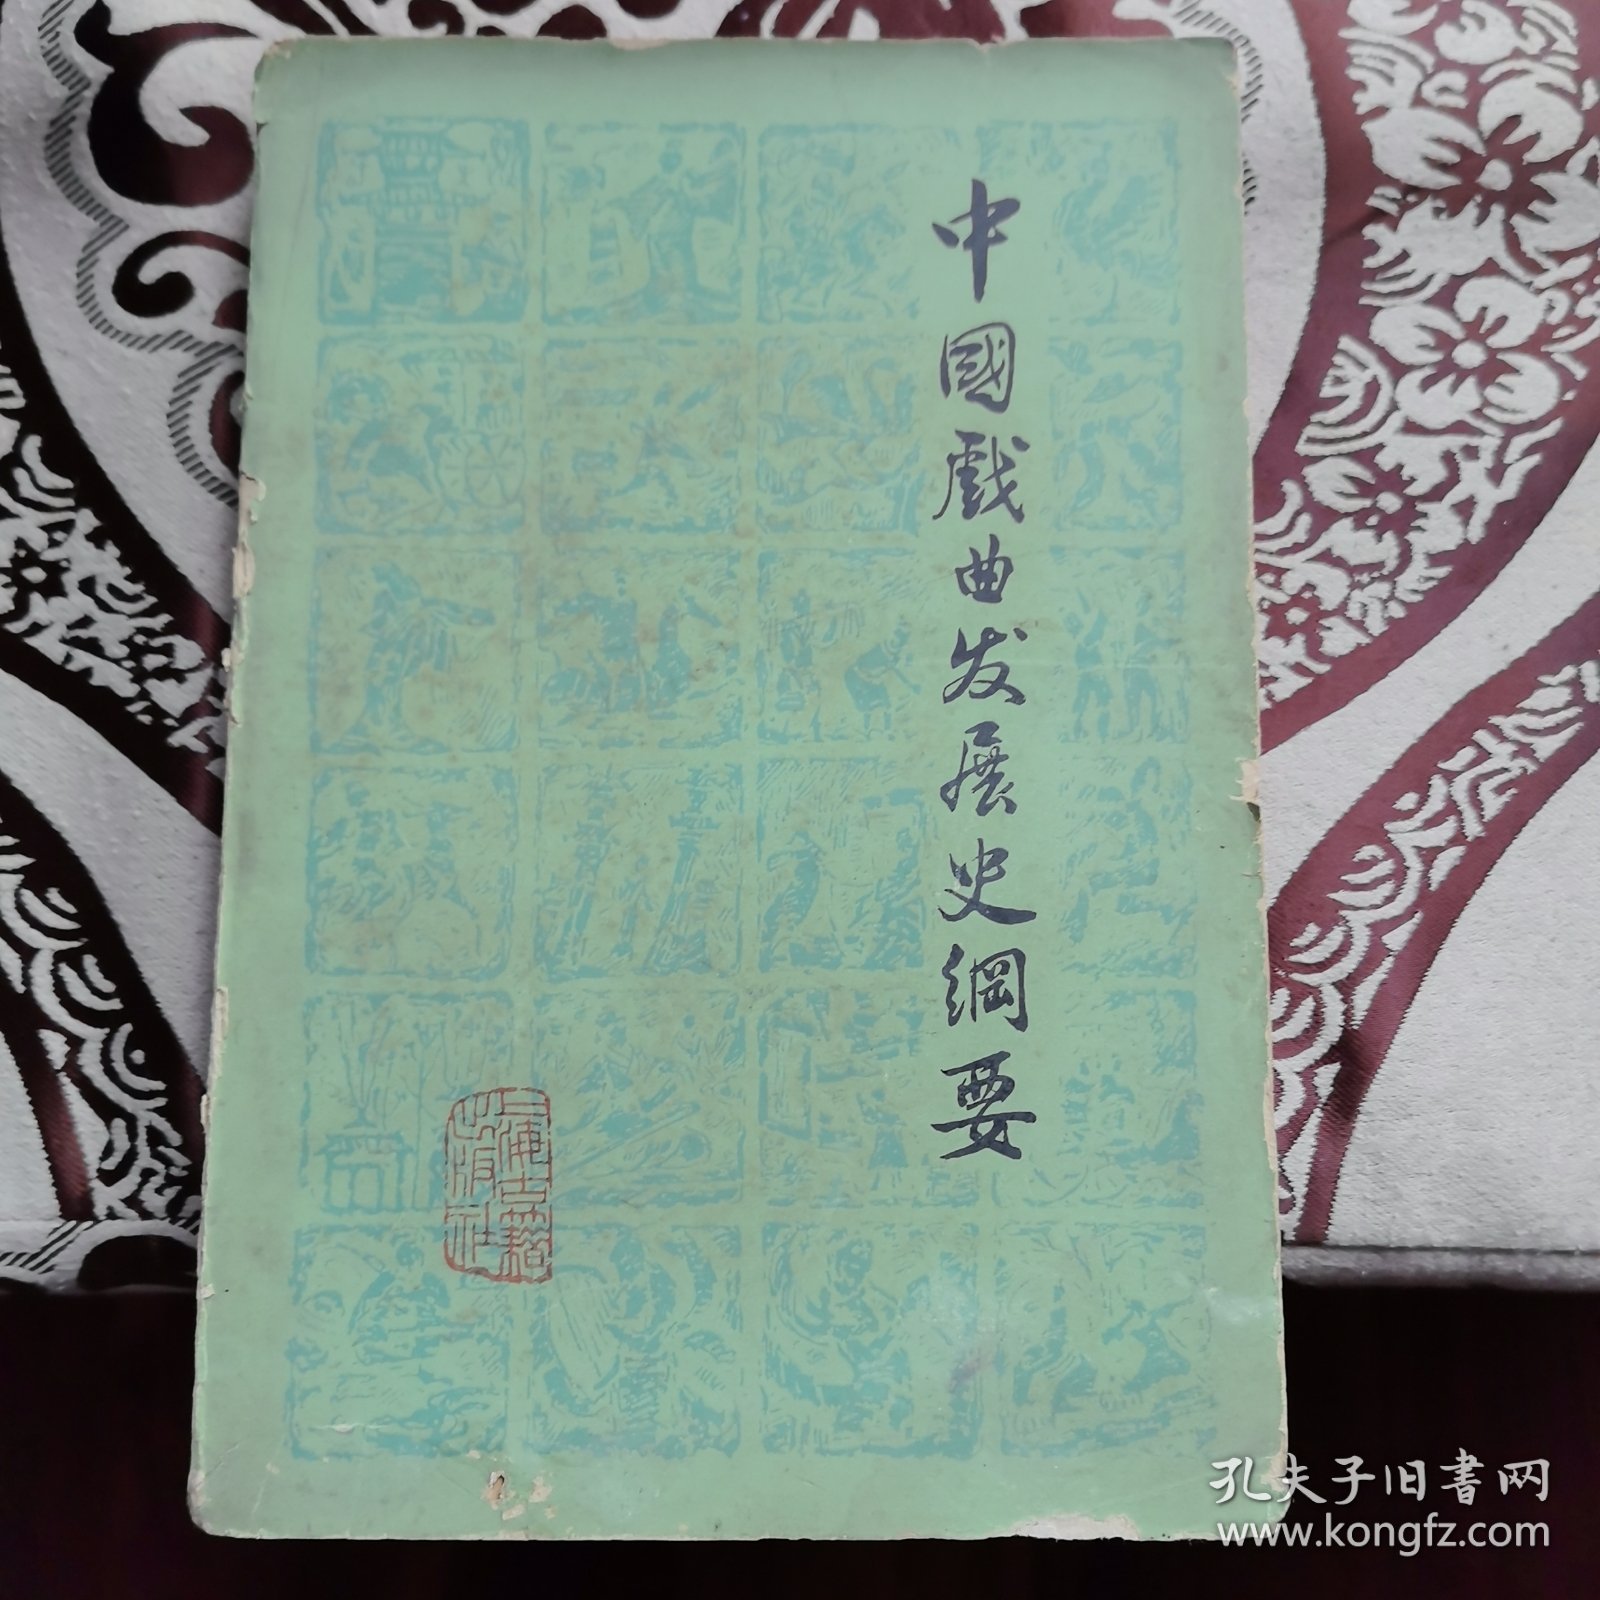 中國戲曲发展史綱要
上海古籍
出版社
孔夫子旧書网
www.kongfz.com